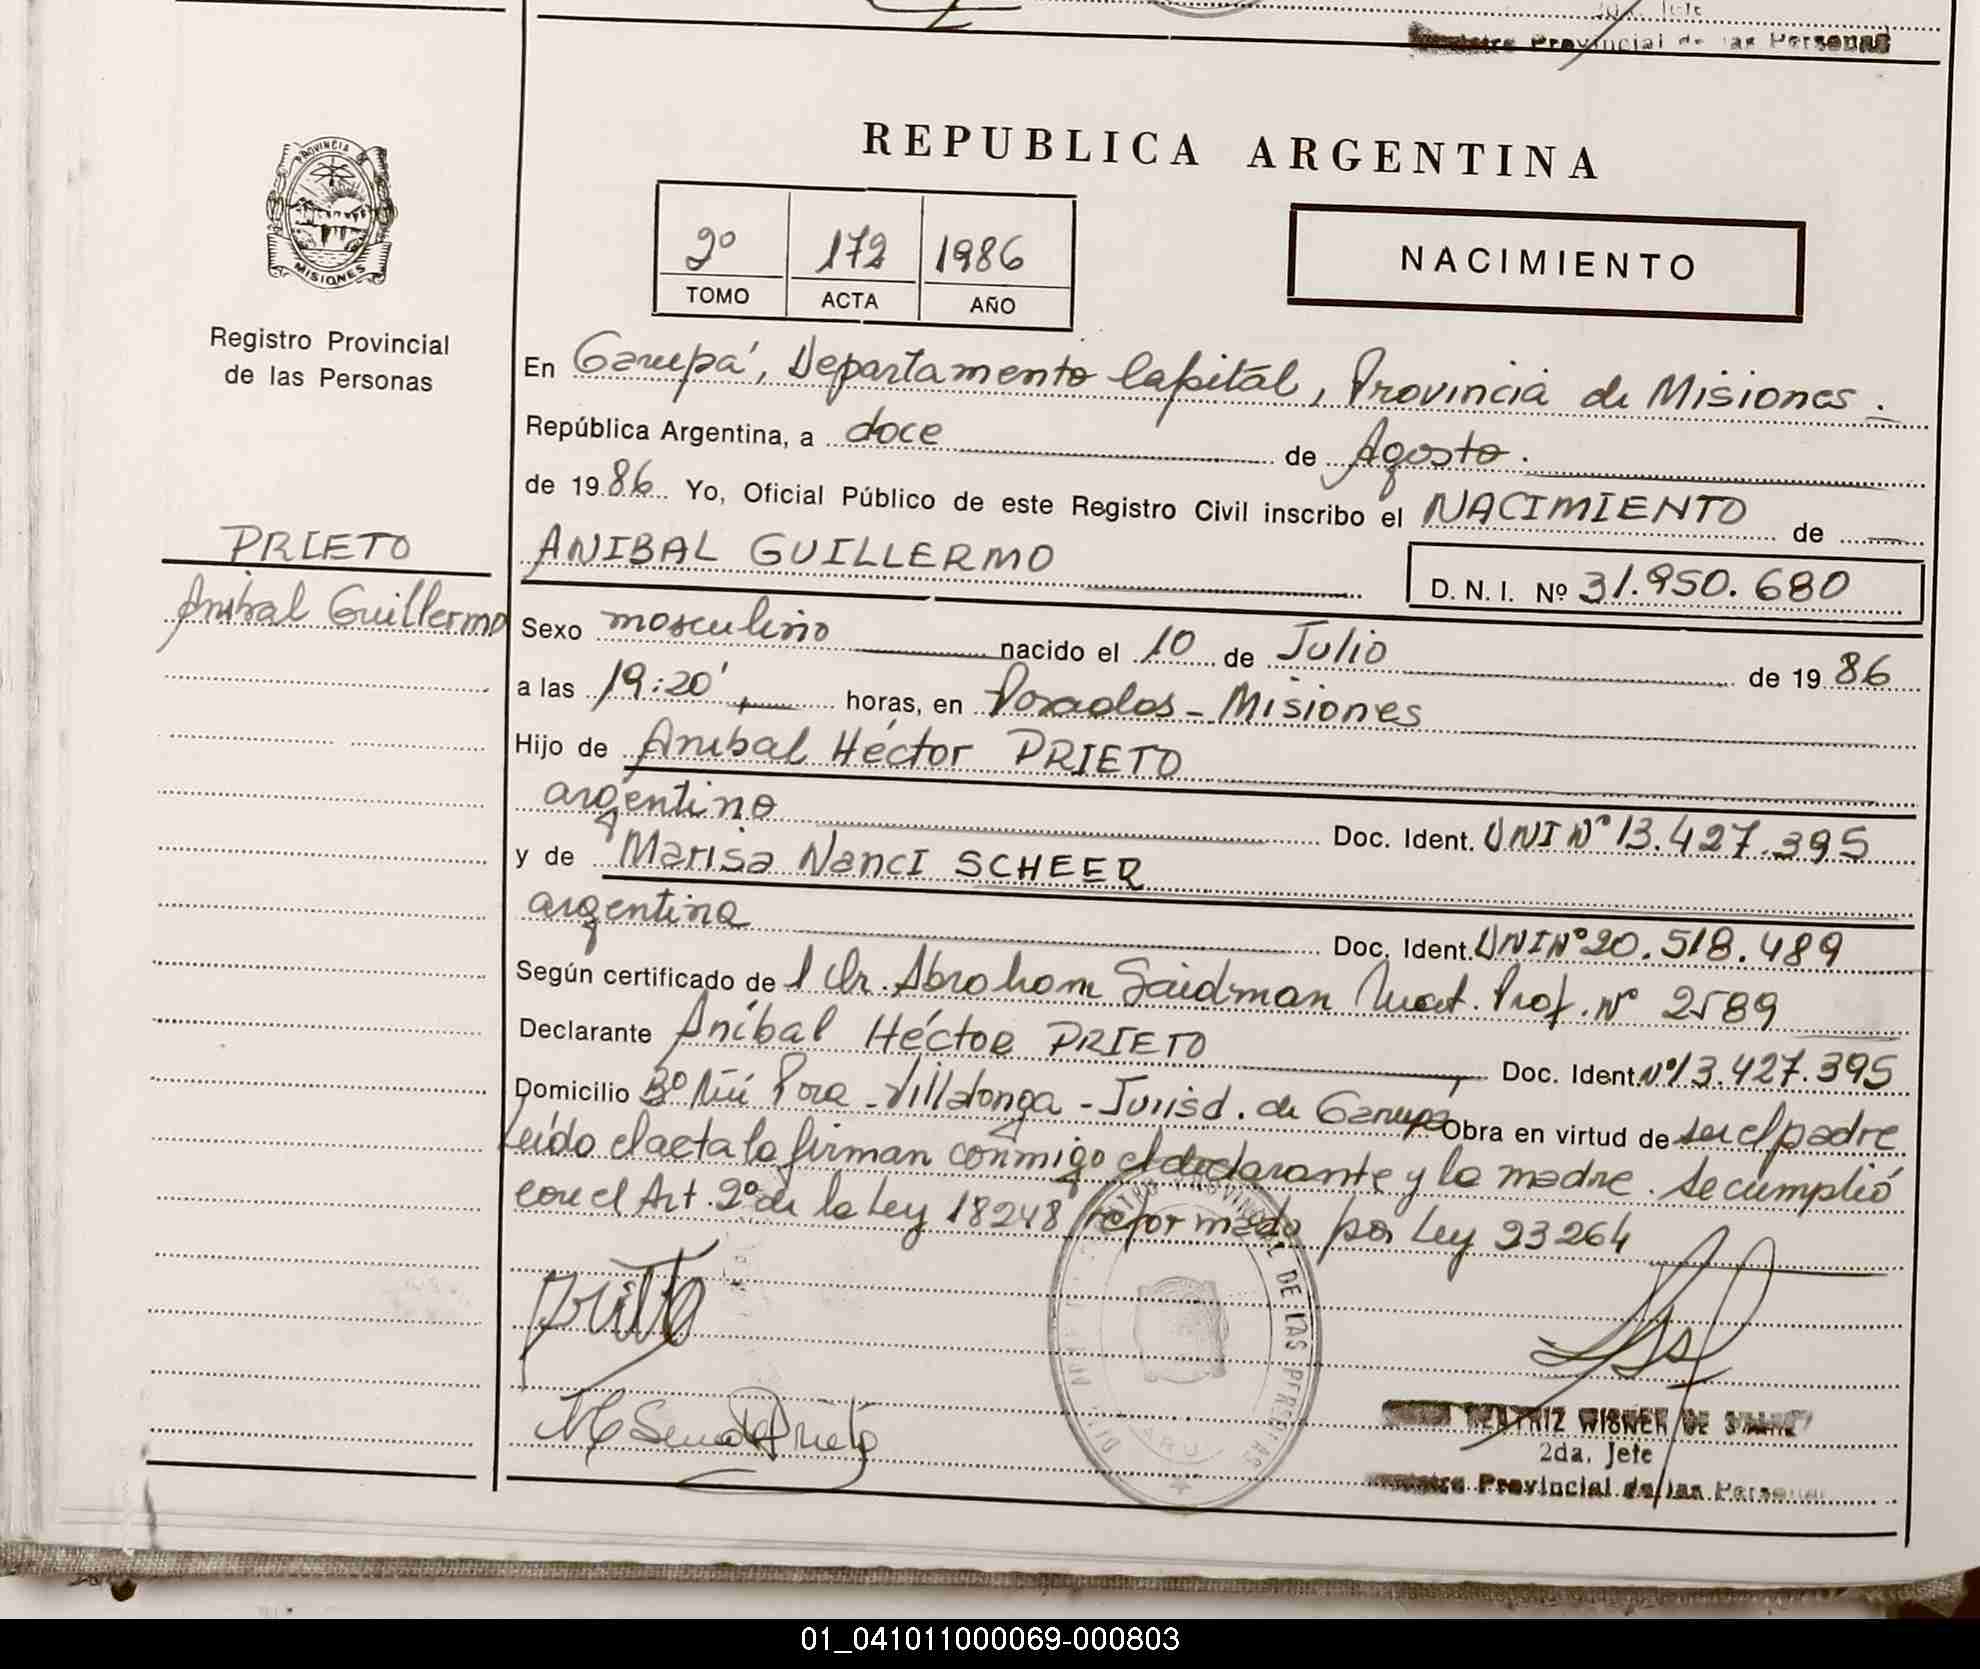 Jefe
Provincial de las Personas
REPUBLICA ARGENTINA
PROVINCIA DE
MISIONES
Registro Provincial
de las Personas
2º 172 1986
TOMO ACTA AÑO
NACIMIENTO
En Garupá, Departamento Capital, Provincia de Misiones.
República Argentina, a doce de Agosto.
de 1986 Yo, Oficial Público de este Registro Civil inscribo el NACIMIENTO de
PRIETO
Anibal Guillermo
ANIBAL GUILLERMO D. N. I. Nº 31.950.680
Sexo masculino nacido el 10 de Julio de 1986
a las 19:20', horas, en Posadas - Misiones
Hijo de Anibal Héctor PRIETO
argentino Doc. Ident. DNI Nº 13.427.395
y de Marisa Nanci SCHEER
argentina Doc. Ident. DNI Nº 20.518.489
Según certificado de l Dr. Abraham Saidman Mat. Prof. Nº 2589
Declarante Aníbal Héctor PRIETO Doc. Ident. Nº 13.427.395
Domicilio Bº Ñú Pora - Villalonga - Jurisd. de Garupá Obra en virtud de ser el padre
Leído el acta la firman conmigo el declarante y la madre. Se cumplió
con el Art. 2º de la Ley 18248 reformado por Ley 23264
DE LAS PERSONAS
BEATRIZ WISNER DE
2da. Jefe
Provincial de las Personas
01_041011000069-000803